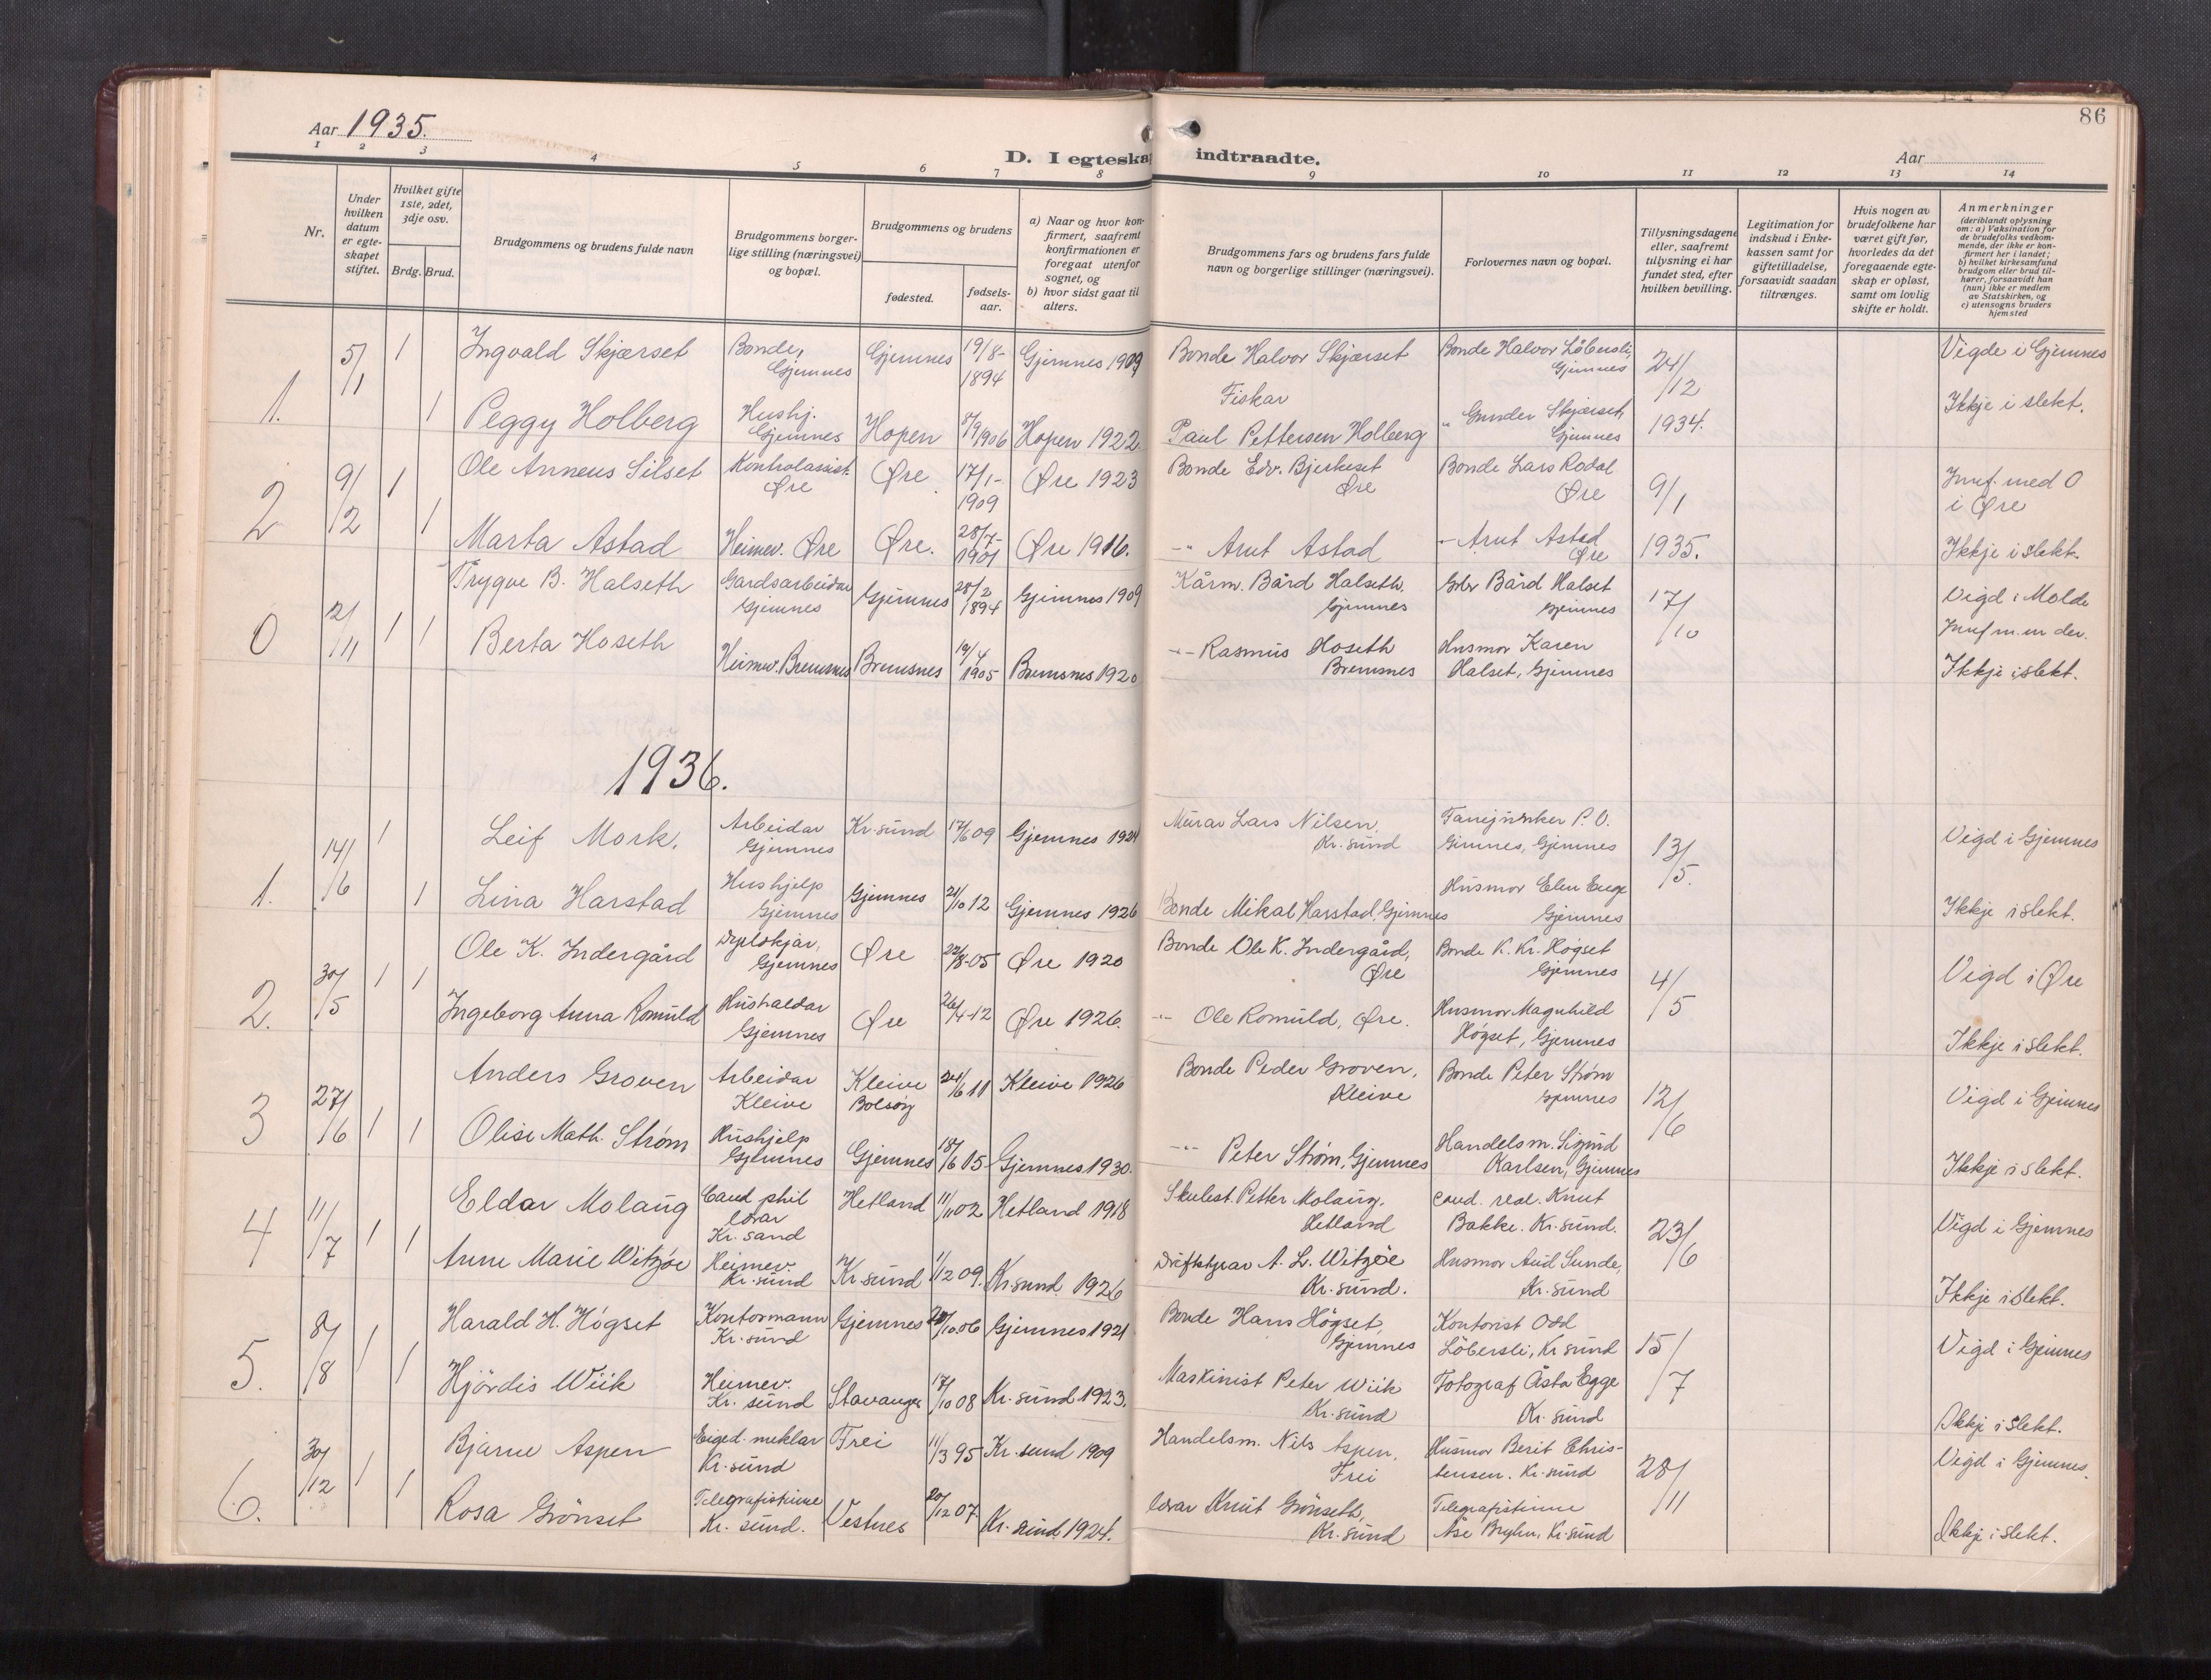 86
Aar 1935.
D. I egteska indtraadte.
Aar
1 2 3 4 5 6 7 8 9 10 11 12 13 14
Nr.
Under hvilken datum er egte-skapet stiftet.
Hvilket gifte 1ste, 2det, 3dje osv.
Brdg. Brud.
Brudgommens og brudens fulde navn
Brudgommens borger-lige stilling (næringsvei) og bopæl.
Brudgommens og brudens
fødested.
fødsels-aar.
a) Naar og hvor kon-firmert, saafremt konfirmationen er foregaat utenfor sognet, og
b) hvor sidst gaat til alters.
Brudgommens fars og brudens fars fulde navn og borgerlige stillinger (næringsvei).
Forlovernes navn og bopæl.
Tillysningsdagene eller, saafremt tillysning ei har fundet sted, efter hvilken bevilling.
Legitimation for indskud i Enke-kassen samt for giftetilladelse, forsaavidt saadan tiltrænges.
Hvis nogen av brudefolkene har været gift før, hvorledes da det foregaaende egte-skap er opløst, samt om lovlig skifte er holdt.
Anmerkninger
(deriblandt oplysning om: a) Vaksination for de brudefolks vedkom-mende, der ikke er kon-firmert her i landet; b) hvilket kirkesamfund brudgom eller brud til-hører, forsaavidt han (hun) ikke er medlem av Statskirken, og c) utensogns bruders hjemsted
1. 5/1 1 Ingvald Skjærset Bonde, Gjemnes Gjemnes 19/8-1894 Gjemnes 1909 Bonde Halvor Skjærset Bonde Halvor Löbersli, Gjemnes 24/12 Vigde i Gjemnes
1 Peggy Holberg Hushj. Gjemnes Hopen 8/9 1906 Hopen 1922 Fiskar Paul Pettersen Holberg " Gunder Skjærset, Gjemnes 1934. Ikkje i slekt.
2 9/2 1 Ole Anneus Silset Kontrolassist. Øre Øre 17/1-1909 Øre 1923 Bonde Edv. Bjerkeset Øre Bonde Lars Rodal Øre 9/1 Innf. med 0 i Øre
1 Marta Astad Heimev. Øre Øre. 28/7-1901 Øre 1916. -"- Arnt Astad - Arnt Astad Øre 1935. Ikkje i slekt.
0 2/11 1 Trygve B. Halseth Gardsarbeidar Gjemnes Gjemnes 28/2 1894 Gjemnes 1909 Kårm. Bård Halseth, Gjemnes Gbr Bård Halset Gjemnes 17/10 Vigd i Molde
1 Berta Hoseth Heimev. Bremsnes Bremsnes 19/4 1905 Bremsnes 1920 -"- Rasmus Hoseth Bremsnes Husmor Karen Halset, Gjemnes Innf m. nr der. Ikkje i slekt.
1936.
1. 14/6 1 Leif Mork. Arbeidar Gjemnes Kr.sund 17/6 09 Gjemnes 1924 Murar Lars Nilsen, Kr.sund P. O. Gimnes, Gjemnes 13/5. Vigd i Gjemnes
1 Lina Harstad Hushjelp Gjemnes Gjemnes 21/10 12 Gjemnes 1926 Bonde Mikal Harstad, Gjemnes Husmor Elen Enge Gjemnes Ikkje i slekt.
2. 30/5 1 Ole K. Indergård Gjemnes Øre 22/8-05 Øre 1920 Bonde Ole K. Indergård, Øre Bonde K. Kr. Högset Gjemnes 4/5 Vigd i Øre
1 Ingeborg Anna Romuld Hushaldar Gjemnes Øre 26/4-12 Øre 1926. -"- Ole Romuld, Øre. Husmor Magnhild Högset, Gjemnes Ikkje i slekt.
3 27/6 1 Anders Groven Arbeidar Kleive Kleive Bolsöy 24/6 11 Kleive 1926 Bonde Peder Groven, Kleive Bonde Peter Strøm Gjemnes 12/6 Vigd i Gjemnes
1 Olise Math. Strøm Hushjelp Gjemnes Gjemnes 18/6 15 Gjemnes 1930. -"- Peter Strøm, Gjemnes Handelsm. Sigurd Karlsen, Gjemnes Ikkje i slekt.
4 11/7 1 Eldar Molaug Cand phil lærar Kr.sand Hetland 11/11 02 Hetland 1918 Skulest. Petter Molaug, Hetland cand. real. Knut Bakke. Kr.sund. 23/6 Vigd i Gjemnes
1 Anne Marie Witzøe Heimev. Kr.sund Kr.sund 1/12 09. Kr.sund. 1926 Driftstyrar A. L. Witzöe Kr.sund. Husmor Aud Sunde, Kr.sund Ikkje i slekt.
5. 8/8 1 Harald H. Högset Kontormann Kr.sund Gjemnes 20/10 06 Gjemnes 1921 Bonde Hans Högset, Gjemnes Kontorist Odd Löbersli, Kr.sund 15/7 Vigd i Gjemnes
1 Hjördis Wiik Heimev. Kr.sund Stavanger 17/10 08 Kr.sund 1923. Maskinist Peter Wiik Kr.sund Fotograf Åsta Egge Kr.sund Ikkje i slekt.
6. 30/12 1 Bjarne Aspen Eiged. meklar Kr.sund Frei 11/3 95 Kr.sund 1909 Handelsm. Nils Aspen, Frei Husmor Berit Chris-tensen. Kr.sund 28/11 Vigd i Gjemnes.
1 Rosa Grönset Telegrafistinne Kr.sund. Vestnes 20/12 07. Kr.sund 1924. lærar Knut Grönseth, Kr.sund Telegrafistinne Åse Bryhn. Kr.sund Ikkje i slekt.